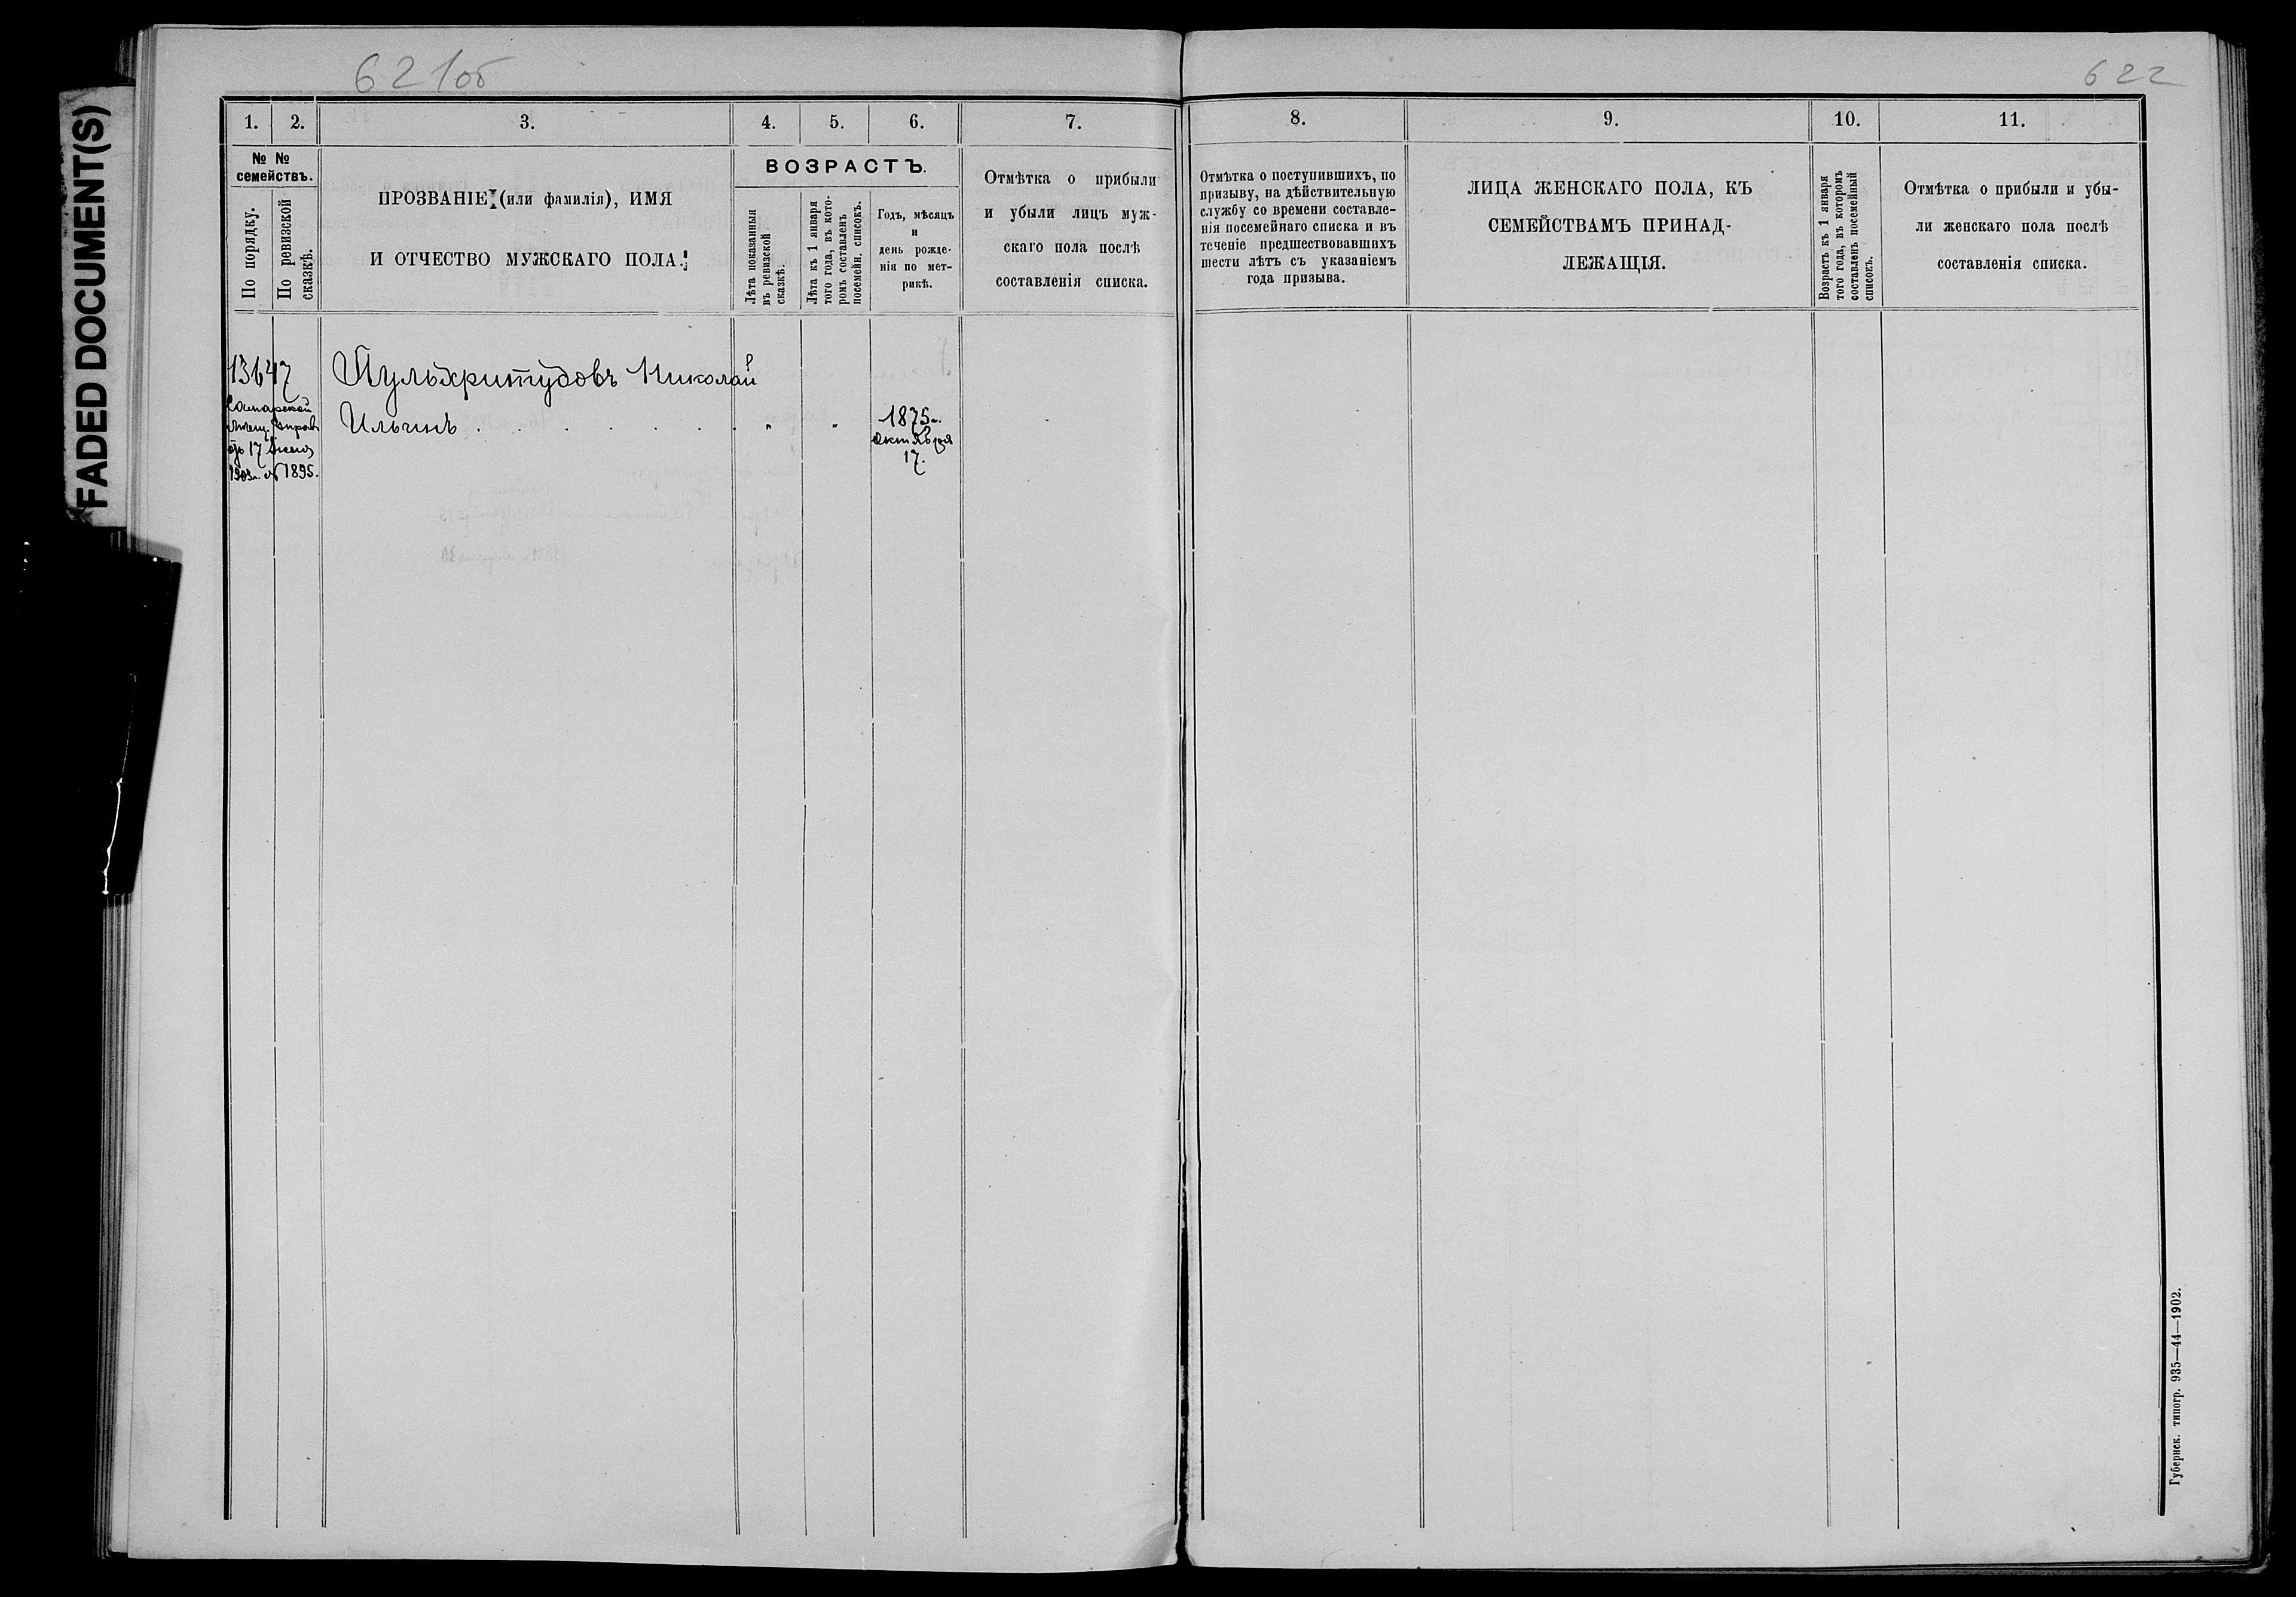 FADED DOCUMENT(S)
621об
622
1. 2. 3. 4. 5. 6. 7.
№ № семействъ.
По порядку.
По ревизской сказкѣ.
ПРОЗВАНІЕ (или фамилія), ИМЯ
И ОТЧЕСТВО МУЖСКАГО ПОЛА.
ВОЗРАСТЪ.
Лѣта показанныя
въ ревизской
сказкѣ.
Лѣта къ 1 января
того года, въ кото-
ромъ составленъ
посемейн. списокъ.
Годъ, мѣсяцъ
и
день рожде-
нія по мет-
рикѣ.
Отмѣтка о прибыли
и убыли лицъ муж-
скаго пола послѣ
составленія списка.
13647
Самарской
мѣщ. управ
отъ 17
1903г. № 1895.
Пульхритудовъ Николай
Ильинъ . . . . . . „ „
1875г.
октября
17.
8. 9. 10. 11.
Отмѣтка о поступившихъ, по
призыву, на дѣйствительную
службу со времени составле-
нія посемейнаго списка и въ
теченіе предшествовавшихъ
шести лѣтъ съ указаніемъ
года призыва.
ЛИЦА ЖЕНСКАГО ПОЛА, КЪ
СЕМЕЙСТВАМЪ ПРИНАД-
ЛЕЖАЩІЯ.
Возрастъ къ 1 января
того года, въ которомъ
составленъ посемейный
списокъ.
Отмѣтка о прибыли и убы-
ли женскаго пола послѣ
составленія списка.
Губернск. типогр. 935—44—1902.